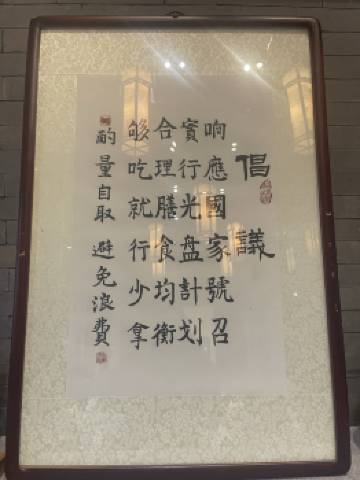 倡議
响應國家號召
實行光盘計划
合理膳食均衡
够吃就行少拿
酌量自取 避免浪費